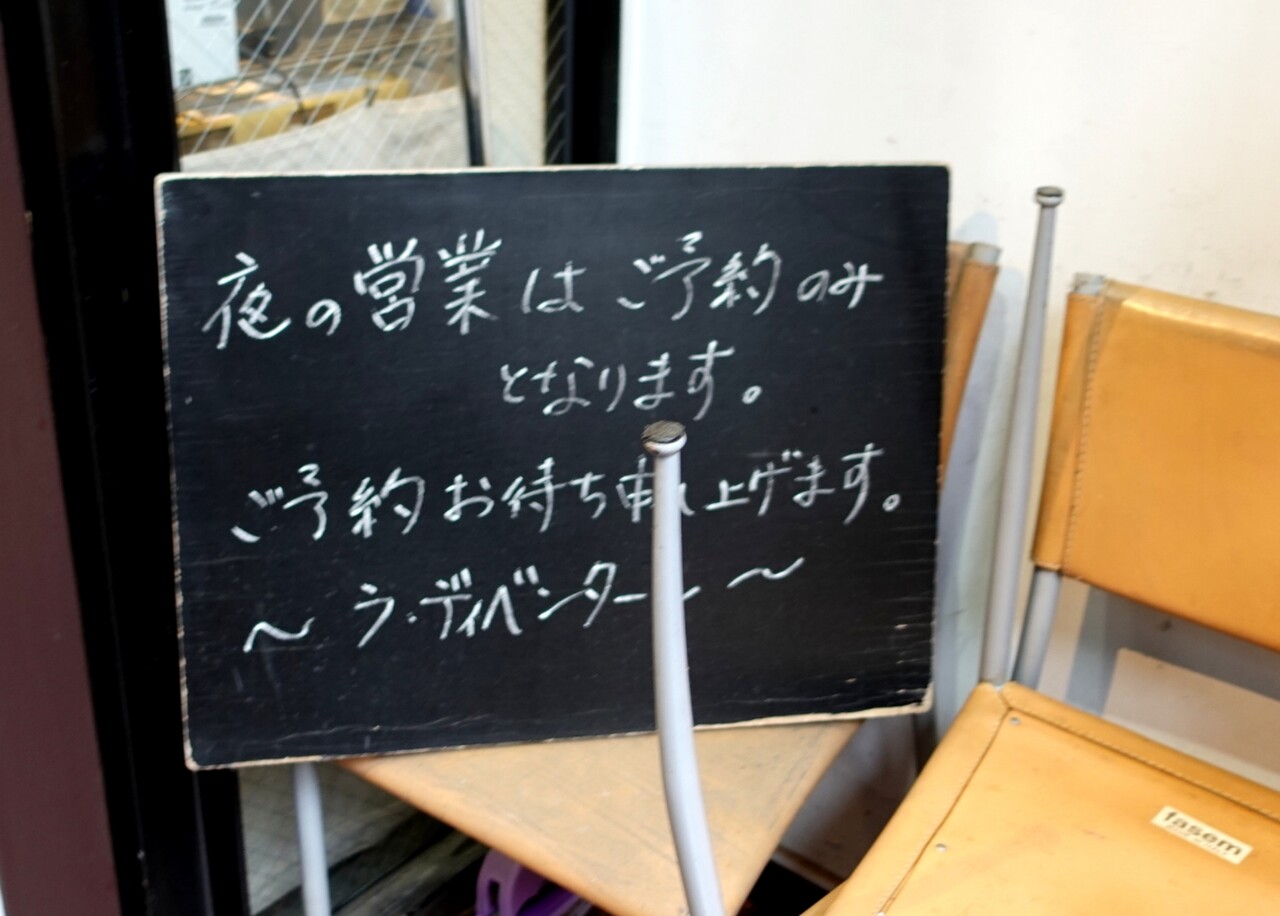 夜の営業はご予約のみ
となります。
ご予約お待ち申し上げます。
～ラ・ディベンター～
fasem